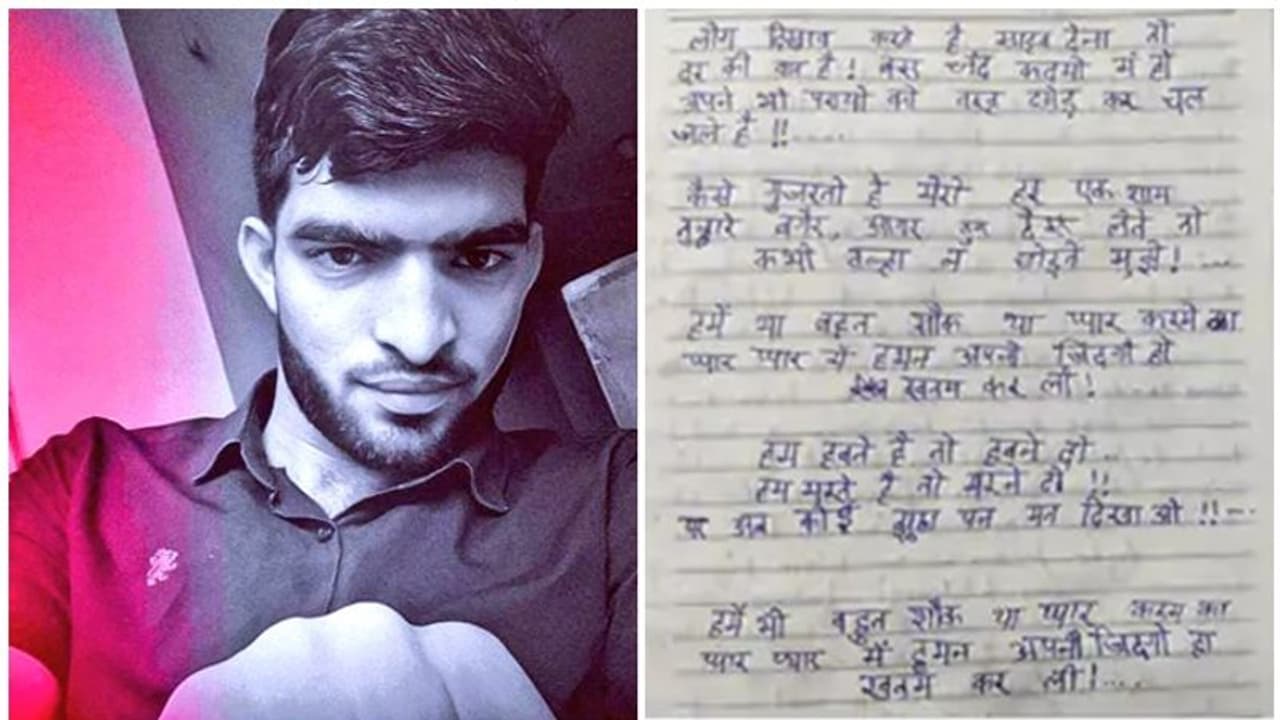 लोग दिखाव करते है साइब देना तो
दूर की बात है! बस चंद कदमो में ही
अपने भी परायो की तरह छोड़ कर चल
जाते है !!.....
कैसे गुजरती है मेरी हर एक शाम
तुम्हारे बगैर, अगर तुम देख लेते तो
कभी तन्हा न छोड़ते मुझे! ....
हमें भी बहुत शौक था प्यार करने का
प्यार प्यार में हमन अपनी जिंदगी ही
खतम कर ली!
हम डूबते है तो डूबने दो ..
हम मरते है तो मरने दो !!
पर अब कोई झूठा पन मत दिखाओ !!....
हमें भी बहुत शौक था प्यार करन का
प्यार प्यार में हमन अपनी जिंदगी ही
खतम कर ली!....